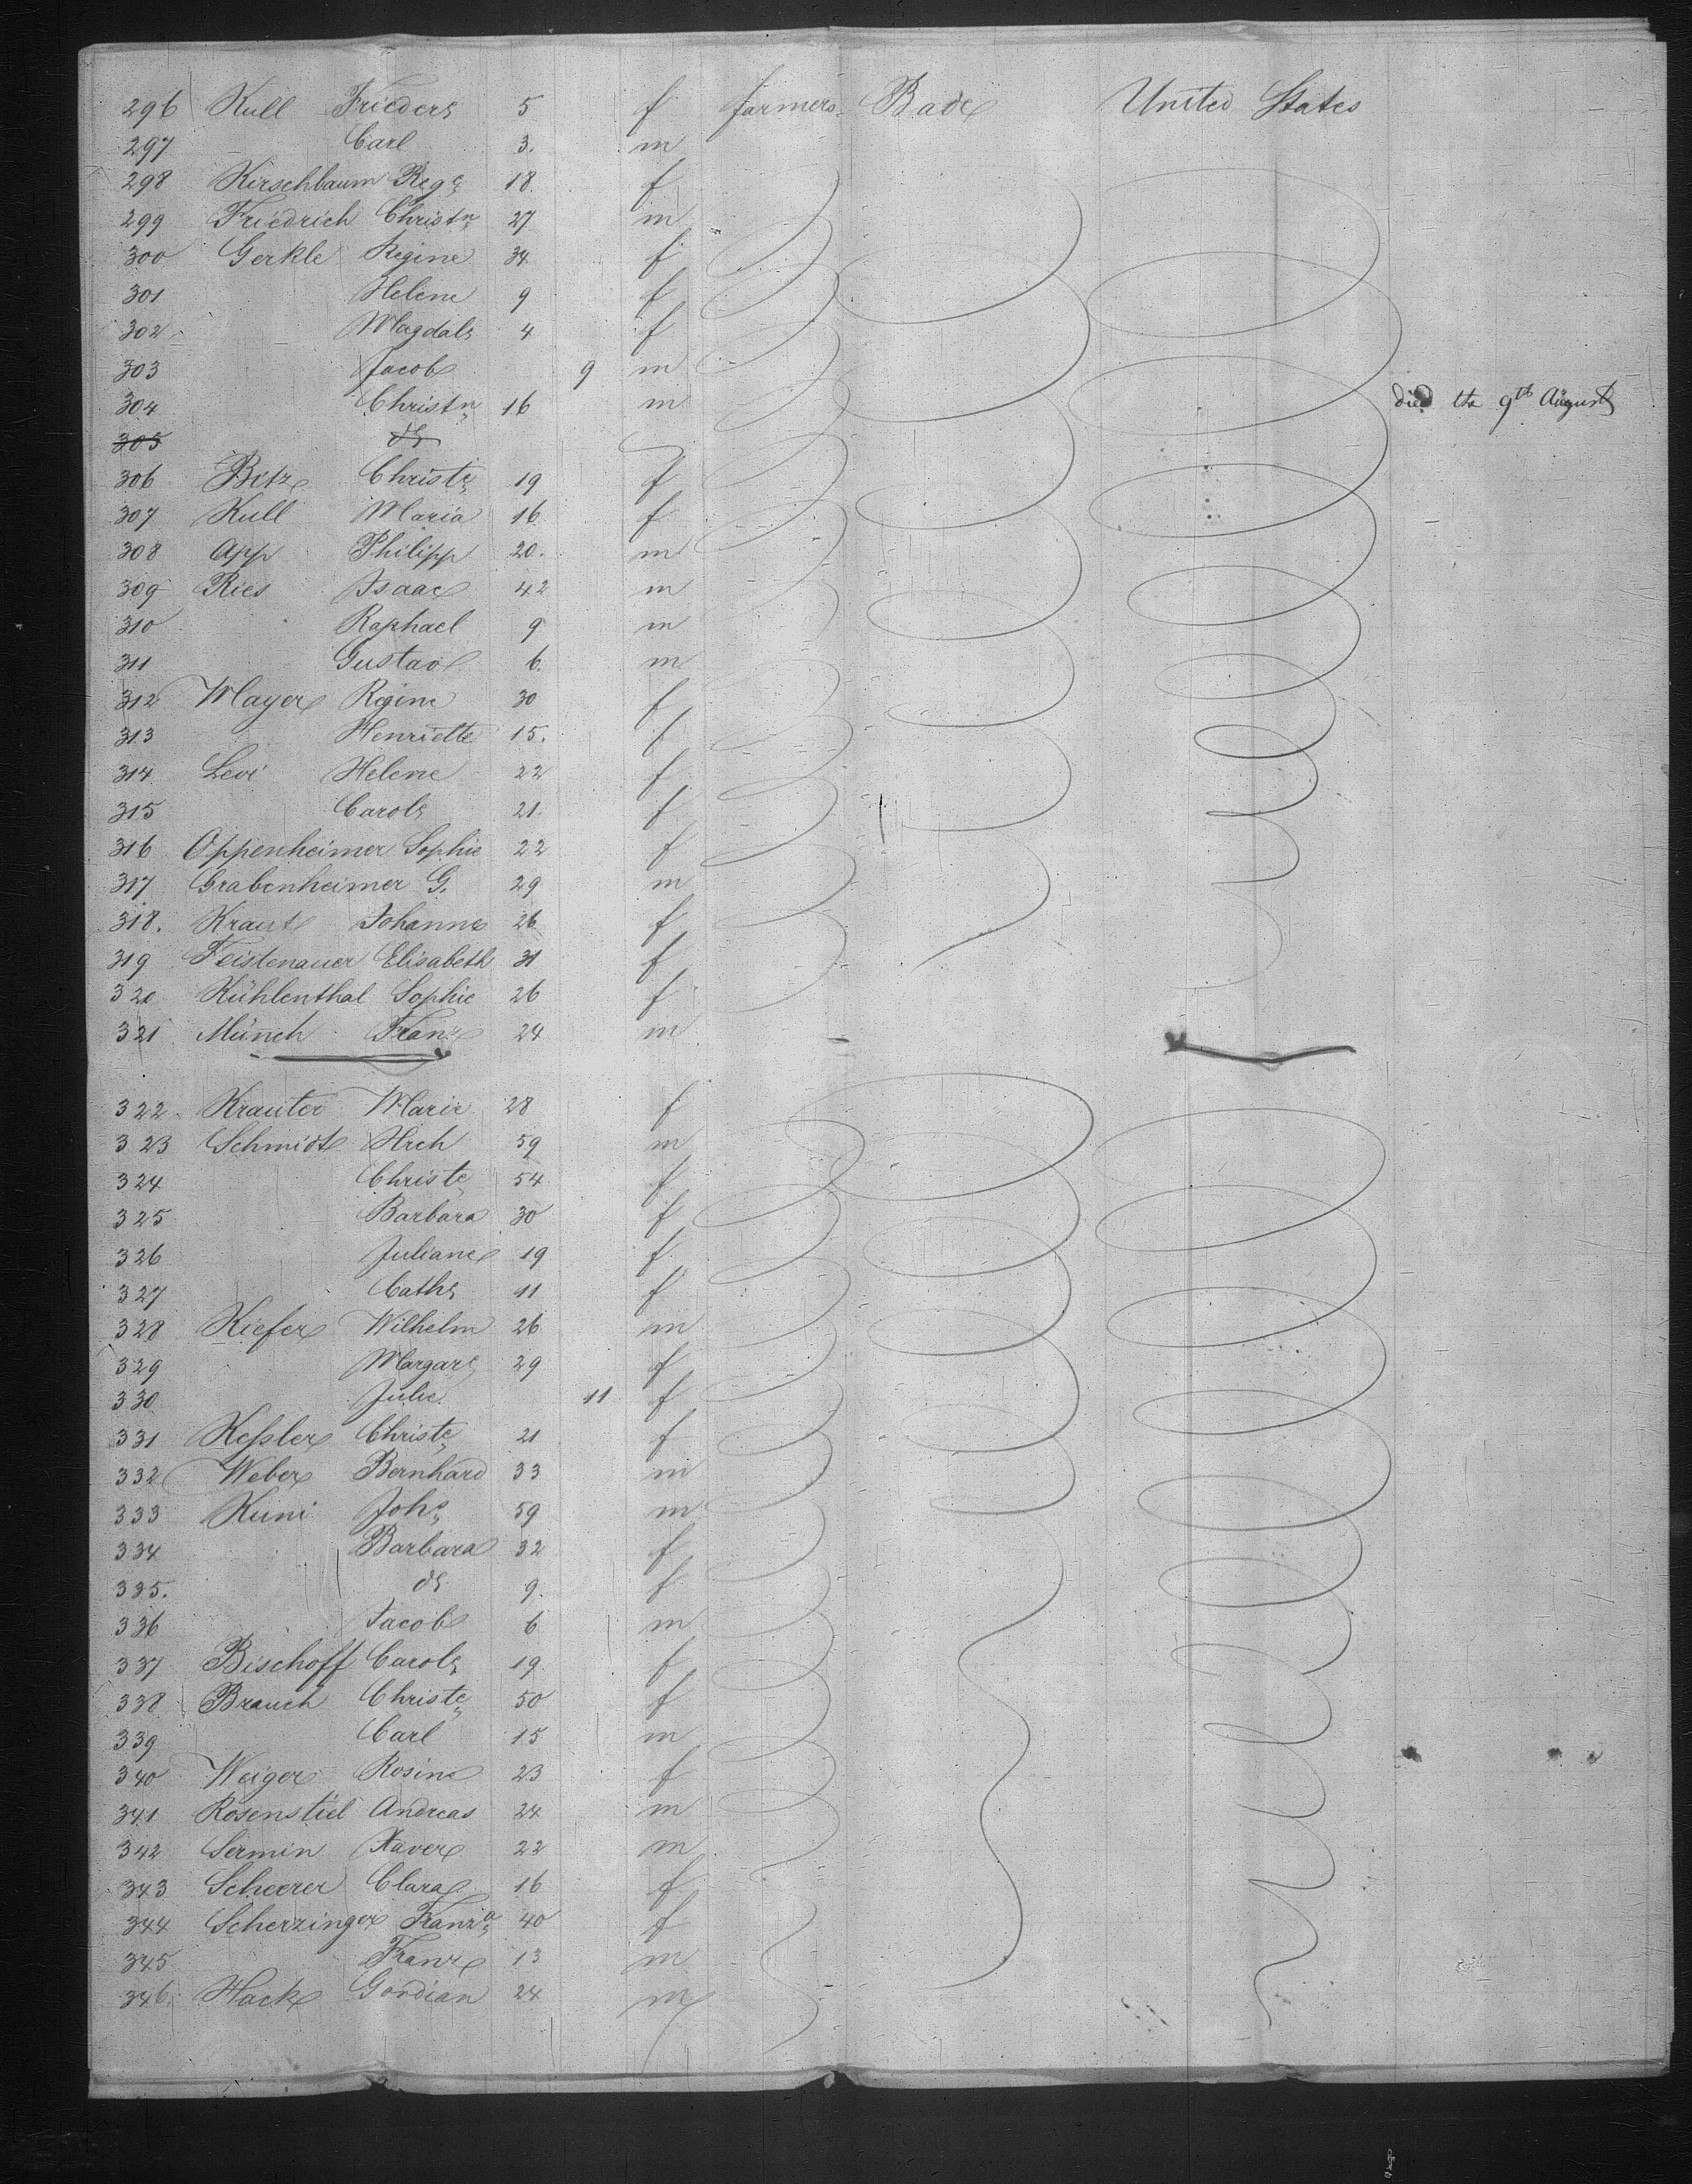 296 Kull Frieder: 5 f farmers Bade United States
297 Carl 3. m
298 Kirschbaum Reg e: 18 f
299 Friedrich Christn: 27 m
300 Gerkle Regine 34 f
301 Helene 9 f
302 Magdal: 4 f
303 Jacob 9 m
304 Christn: 16 m died the 9th August
305 do
306 Bitz Christe: 19 f
307 Kull Maria 16 f
308 App Philipp 20. m
309 Ries Isaac 42 m
310 Raphael 9 m
311 Gustav 6. m
312 Mayer Regine 30 f
313 Henriette 15. f
314 Levi Helene 22 f
315 Carol: 21. f
316 Oppenheimer Sophie 22 f
317 Grabenheimer G. 29 m
318. Kraut Johanne 26 f
319 Feistenauer Elisabeth 31 f
320 Kühlenthal Sophie 26 f
321 Münch Franz 24 m
322 Krauter Marie 28 f
323 Schmidt Hrch 59 m
324 Christe: 54 f
325 Barbara 30 f
326 Juliane 19 f
327 Cath: 11 f
328 Kiefer Wilhelm 26 m
329 Margar: 29 f
330 Julie 11 f
331 Keßler Christe: 21 f
332 Weber Bernhard 33 m
333 Kuni Joh: 59 m
334 Barbara 32 f
335. do 9. f
336 Jacob 6 m
337 Bischoff Carol: 19 f
338 Brauch Christe: 50 f
339 Carl 15 m
340 Weiger Rosine 23 f
341 Rosenstiel Andreas 24 m
342 Sermin Xaver 22 m
343 Scheerer Clara 16 f
344 Scherzinger Franz a: 40 f
345 Franz 13 m
346. Hack Gordian 24 m